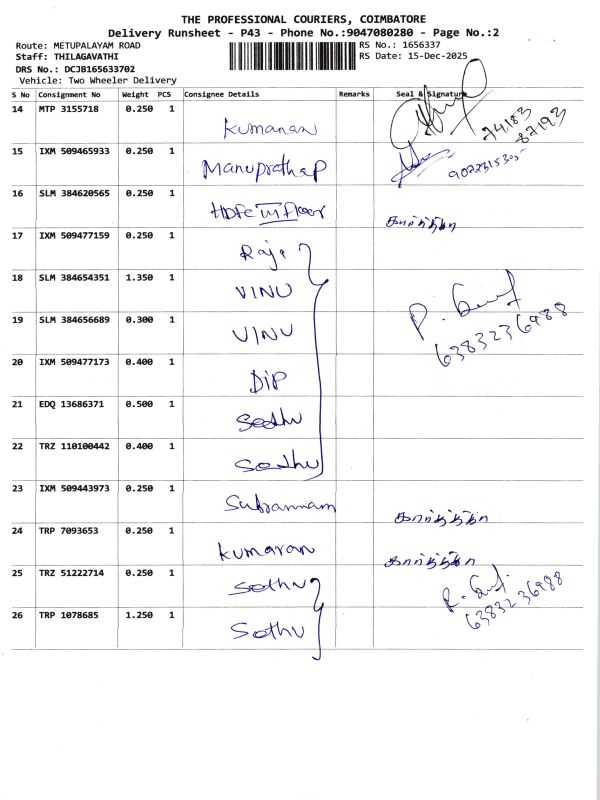 THE PROFESSIONAL COURIERS, COIMBATORE
Delivery Runsheet - P43 - Phone No.:9047080280 - Page No.:2
Route: METUPALAYAM ROAD RS No.: 1656337
Staff: THILAGAVATHI RS Date: 15-Dec-2025
DRS No.: DCJB165633702
Vehicle: Two Wheeler Delivery
S No Consignment No Weight PCS Consignee Details Remarks Seal & Signature
14 MTP 3155718 0.250 1 Kumanan 74183
87193
15 IXM 509465933 0.250 1 Manuprathap
16 SLM 384620565 0.250 1 Hdfc III floor கார்த்திகா
17 IXM 509477159 0.250 1 Raja
18 SLM 384654351 1.350 1 VINU
19 SLM 384656689 0.300 1 VINU 6383236988
20 IXM 509477173 0.400 1 Dip
21 EDQ 13686371 0.500 1 Sethu
22 TRZ 110100442 0.400 1 Sethu
23 IXM 509443973 0.250 1 கார்த்திகா
24 TRP 7093653 0.250 1 Kumaran கார்த்திகா
25 TRZ 51222714 0.250 1 Sethu 6383236988
26 TRP 1078685 1.250 1 Sethu